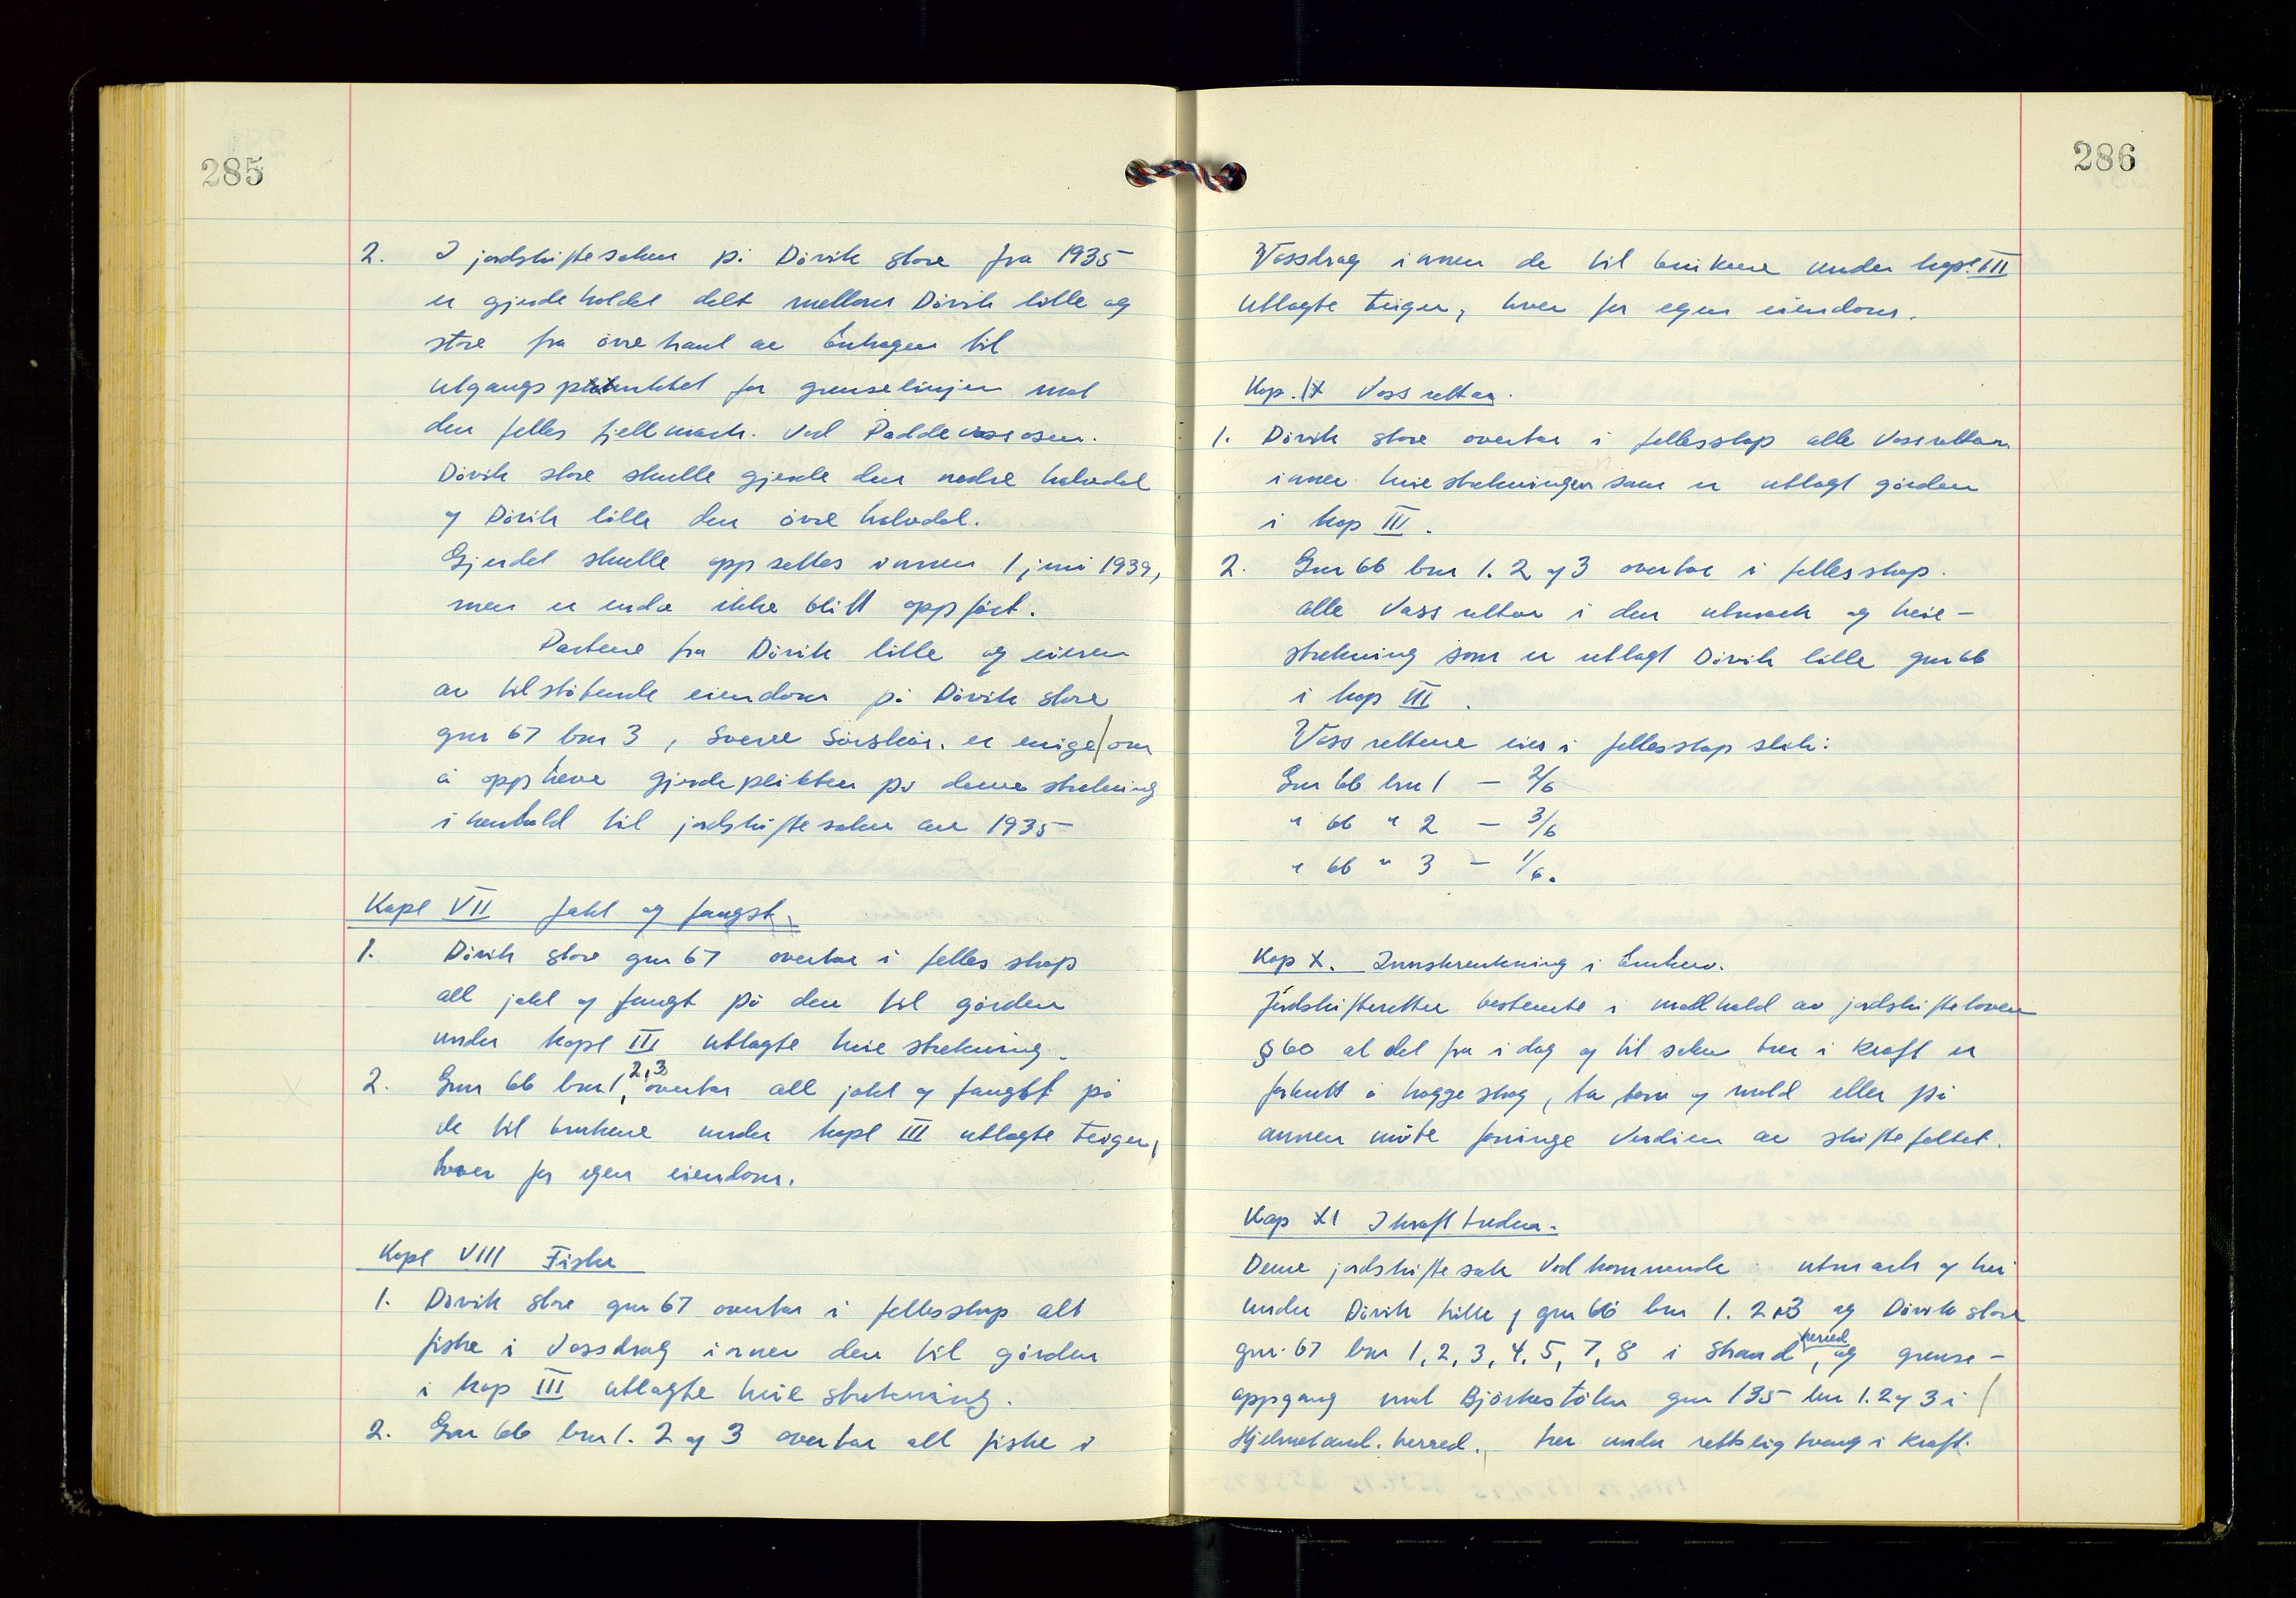 285
2. I jordskiftesaken på Dövik store fra 1935
er gjerdeholdet delt mellom Dövik lille og
store fra övre kant av
utgangspunktet for grenselinjen mot
den felles fjellmark ved Paddevassosen.
Dövik store skulle gjerde den nedre halvdel
og Dövik lille den övre halvdel.
Gjerdet skulle oppsettes innen 1 juni 1939,
men er enda ikke blitt oppfört.
Partene fra Dövik lille og eieren
av tilstötende eiendom på Dövik store
gnr 67 bnr 3, Sverre er enige om
å oppheve gjerdeplikten på denne strekning
i henhold til jordskiftesaken av 1935
Kapl VII Jakt og fangst.
1. Dövik store gnr 67 overtar i fellesskap
all jakt og fangt på den til gården
under kapl III utlagte heiestrekning.
2. Gnr 66 bnr 1, 2, 3 overtar all jakt og fangst på
de til brukene under kapl III utlagte teiger,
hver for egen eiendom.
Kapl VIII Fiske
1. Dövik store gnr 67 overtar i fellesskap alt
fiske i Vassdrag innen den til gården
i kap III utlagte heiestrekning.
2. Gnr 66 bnr 1. 2 og 3 overtar alt fiske i
286
Vassdrag innen de til brukene under kapl. III
utlagte teiger, hver for egen eiendom.
Kap. IX Vassrettar.
1. Dövik store overtar i fellesskap alle Vassrettar
innen heiestrekningen som er utlagt gården
i kap III.
2. Gnr 66 bnr 1. 2 og 3 overtar i fellesskap.
alle Vassrettar i den utmark og heie-
strekning som er utlagt Dövik lille gnr 66
i kap III.
Vassrettene eies i fellesskap slik:
Gnr 66 bnr 1 - 2/6
" 66 " 2 - 3/6
" 66 " 3 - 1/6.
Kap X. Innskrenkning i bruken.
Jordskifteretten bestemte i medhold av jordskifteloven
§ 60 at det fra i dag og til saken trer i kraft er
forbutt å hogge skog, ta torv og mold eller på
annen måte forringe Verdien av skiftefeltet.
Kap XI Ikrafttreden.
Denne jordskiftesak Vedkommende utmark og hei
under Dövik lille, gnr 66 bnr 1. 2 &3 og Dövik store
gnr. 67 bnr 1, 2, 3, 4, 5, 7, 8 i Strand herred, og grense-
oppgang mot Björkestölen gnr 135 bnr 1. 2 og 3 i
Hjelmeland. herred. trer under rettslig tvang i kraft.